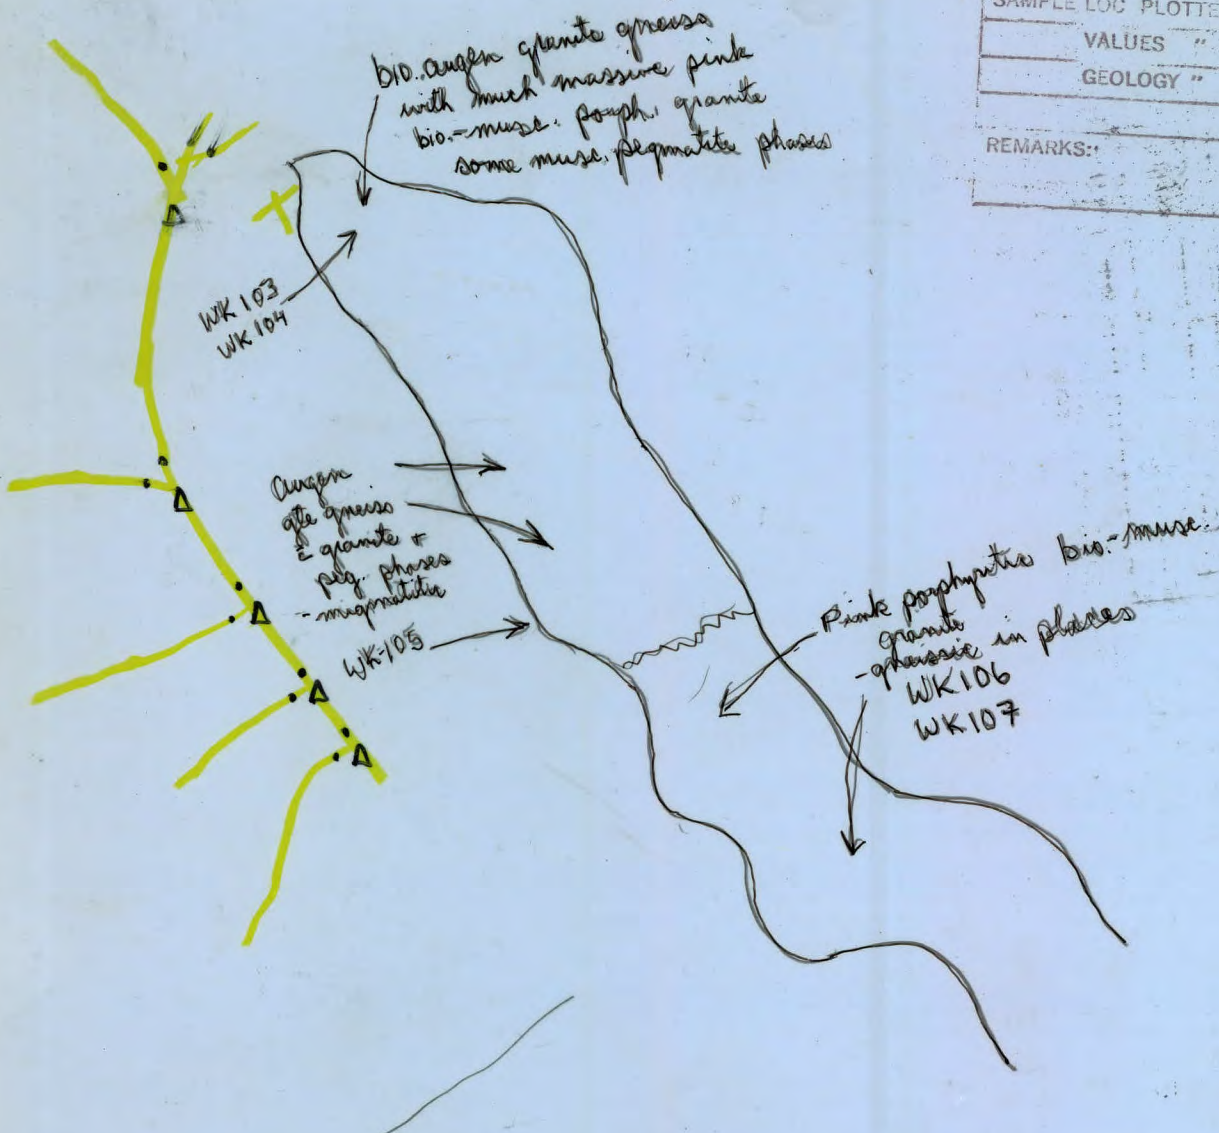 SAMPLE LOC PLOTTE
VALUES "
GEOLOGY "
REMARKS:
bio. augen granite gneiss
with much massive pink
bio.-musc. porph. granite
some musc. pegmatite phases
WK 103
WK 104
augen
gte gneiss
± granite +
peg. phases
- migmatitic
WK-105
Pink porphyritic bio.-musc.
granite
-gneissic in places
WK106
WK107